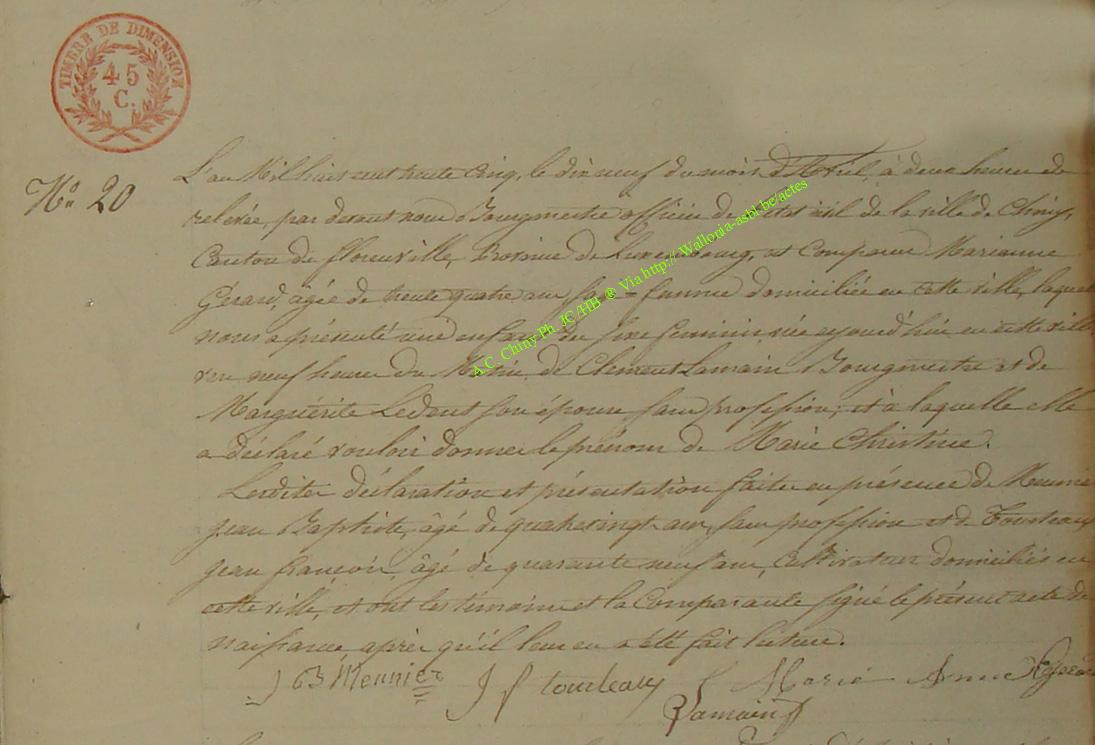 TIMBRE DE DIMENSION
45
C.
N° 20
L'an Mil huit cent trente cinq, le dix neuf du mois d'Avril, à deux heures de
relevée, par devant nous Bourgmestre officier de l'état civil de la ville de Chiny,
Canton de florenville, Province de Luxembourg, est Comparue Marianne
Gérard, âgée de trente quatre ans sage-femme domiciliée en cette ville, laquel
nous a présenté une enfant du sexe féminin, née aujourd'hui en cette ville
vers neuf heures du Matin, de Clement Lamain Bourgmestre et de
Marguérite Ledent son épouse sans profession, et à laquelle elle
a déclaré vouloir donner le prénom de Marie Christine.
Lesdites déclaration et présentation faites en présence de Meunier
jean Baptiste, âgé de quatre vingt ans, sans profession et de Tourteaux
jean françois, âgé de quarante neuf ans, Cultivateur domiciliés en
cette ville, et ont les témoins et la Comparante signé le présent acte de
naissance, après qu'il leur en a été fait lecture.
J B Meunier J f tourteaux Marie Anne
Lamain
A.C. Chiny Ph. JC/HB ® Via http://Wallonia-asbl.be/actes